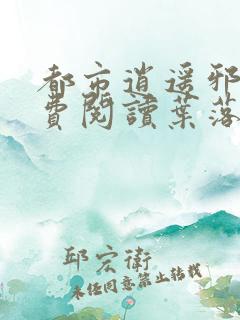 都市逍遥邪
費閱讀葉落
邱宏衛
未经同意禁止转载